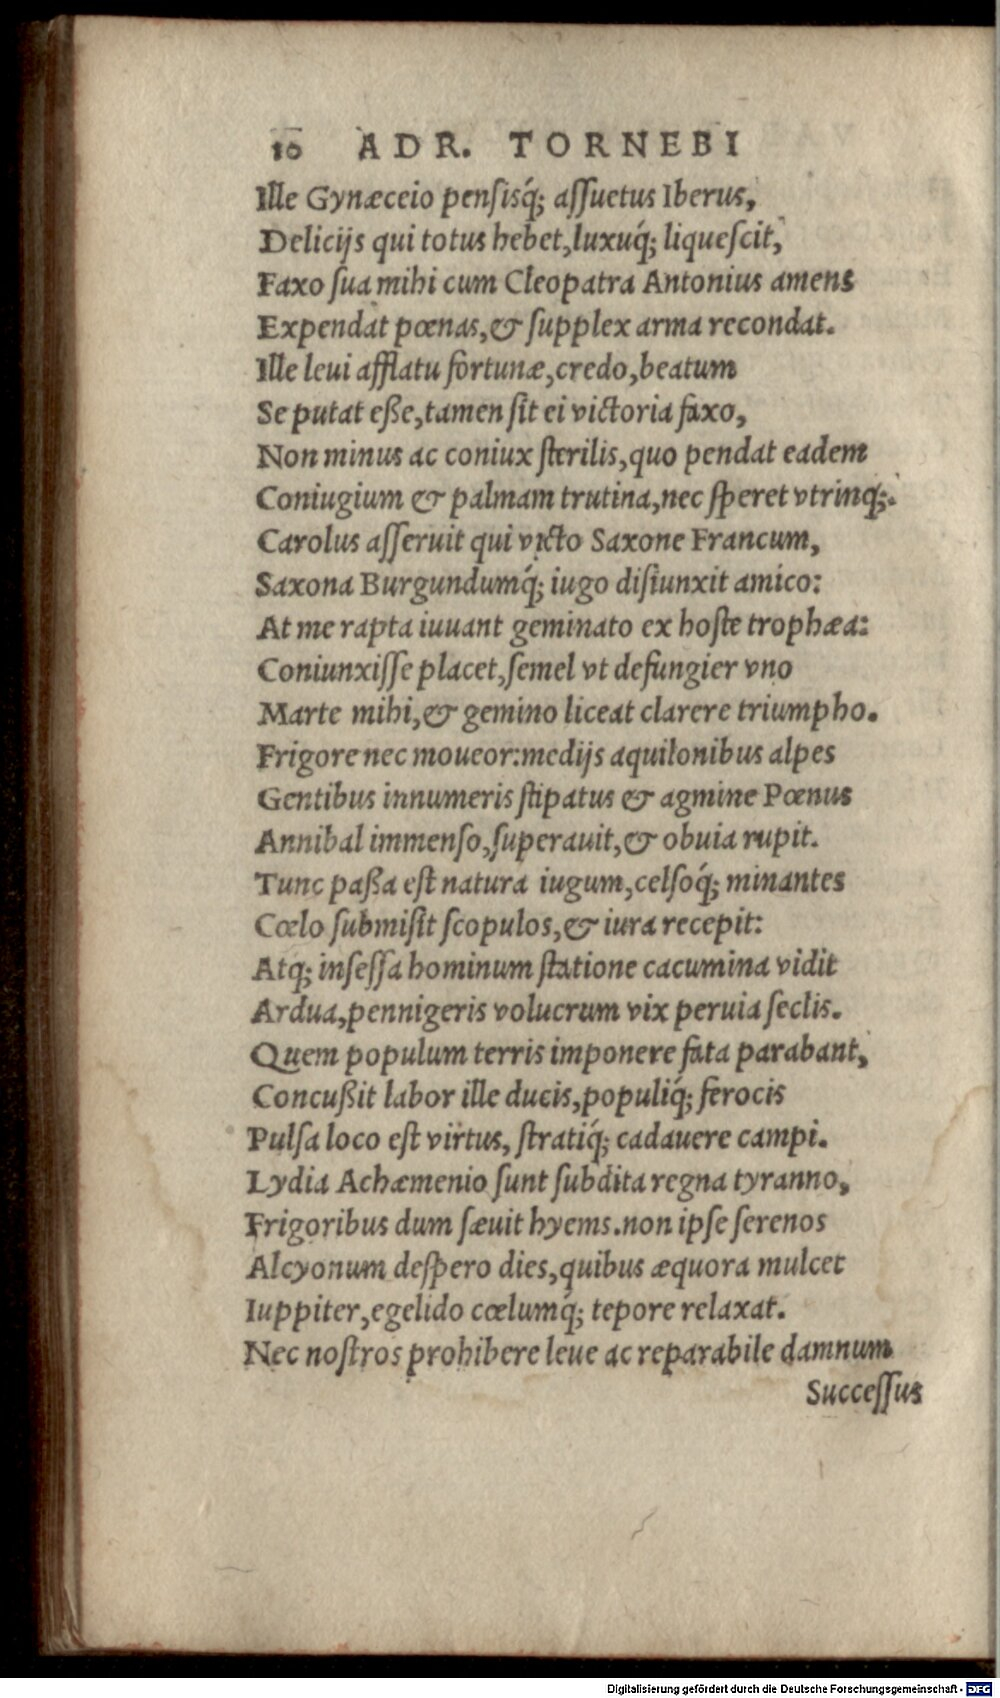 10 ADR. TORNEBI
Ille Gynæceio pensisq́; assuetus Iberus,
Delicijs qui totus hebet, luxuq́; liquescit,
Faxo sua mihi cum Cleopatra Antonius amens
Expendat pœnas, & supplex arma recondat.
Ille leui afflatu fortunæ, credo, beatum
Se putat eße, tamen sit ei victoria faxo,
Non minus ac coniux sterilis, quo pendat eadem
Coniugium & palmam trutina, nec speret vtrinq;.
Carolus asseruit qui victo Saxone Francum,
Saxona Burgundumq́; iugo disiunxit amico:
At me rapta iuuant geminato ex hoste trophæa:
Coniunxisse placet, semel vt defungier vno
Marte mihi, & gemino liceat clarere triumpho.
Frigore nec moueor: medijs aquilonibus alpes
Gentibus innumeris stipatus & agmine Pœnus
Annibal immenso, superauit, & obuia rupit.
Tunc paßa est natura iugum, celsoq́; minantes
Cœlo submisit scopulos, & iura recepit:
Atq; insessa hominum statione cacumina vidit
Ardua, pennigeris volucrum vix peruia seclis.
Quem populum terris imponere fata parabant,
Concußit labor ille ducis, populiq́; ferocis
Pulsa loco est virtus, stratiq́; cadauere campi.
Lydia Achæmenio sunt subdita regna tyranno,
Frigoribus dum sæuit hyems. non ipse serenos
Alcyonum despero dies, quibus æquora mulcet
Iuppiter, egelido cœlumq́; tepore relaxat.
Nec nostros prohibere leue ac reparabile damnum
Successus
Digitalisierung gefördert durch die Deutsche Forschungsgemeinschaft - DFG